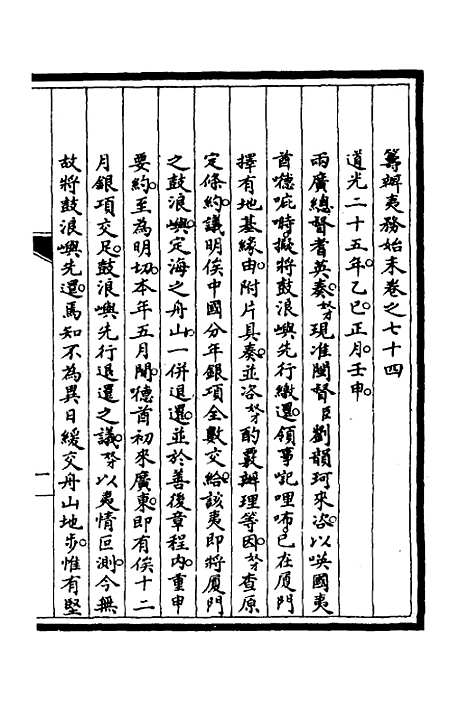 籌辦夷務始末卷之七十四
道光二十五年乙巳正月壬申
兩廣總督耆英奏奴才現准閩督臣劉韻珂來咨以𠸄國夷
酋德庇時擬將鼓浪嶼先行繳還領事記哩布已在厦門
擇有地基緣由附片具奏並咨奴才酌覈辦理等因奴才查原
定條約議明俟中國分年銀項全數交給該夷即將厦門
之鼓浪嶼定海之舟山一併退還並於善後章程內重申
要約至為明切本年五月聞德酋初來廣東即有俟十二
月銀項交足鼓浪嶼先行退還之議奴才以夷情叵測今無
故將鼓浪嶼先還焉知不為異日緩交舟山地步惟有堅
一